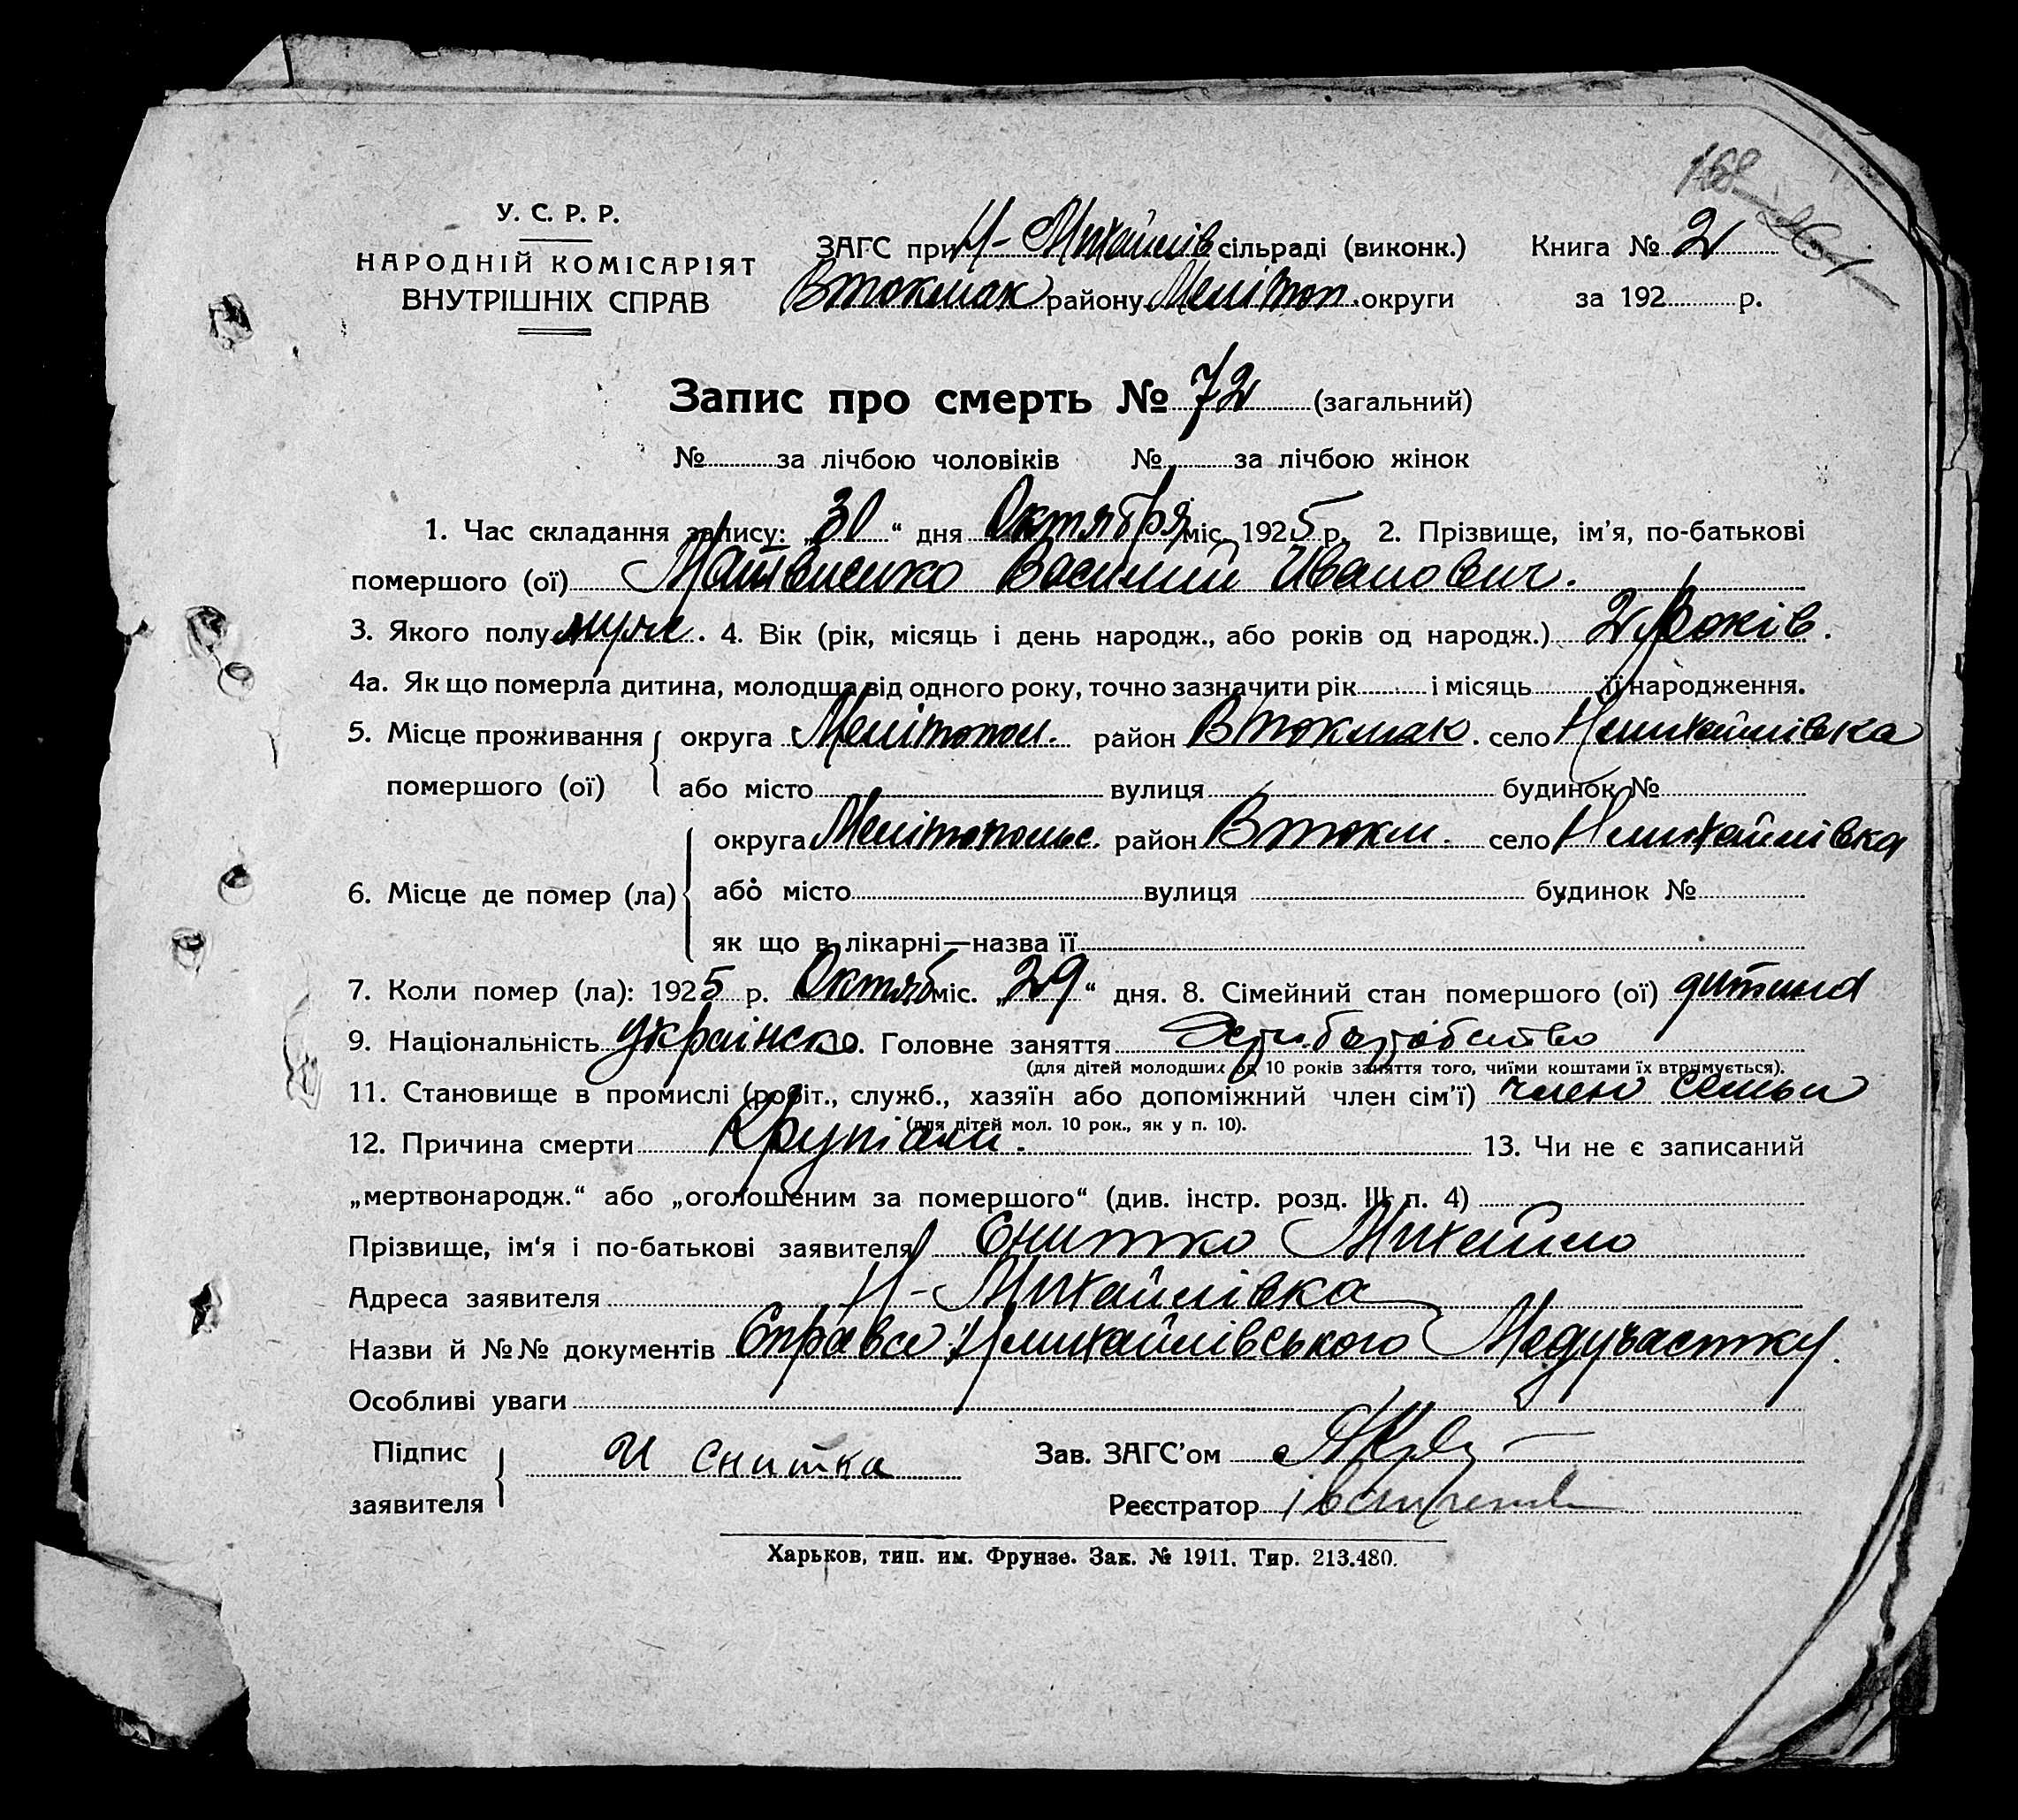 168
261
У. С. Р. Р.
НАРОДНІЙ КОМІСАРІЯТ
ВНУТРІШНІХ СПРАВ
ЗАГС при Н-Михайлів сільраді (виконк.) Книга № 2
Втокмак району Мелітоп. округи за 192 р.
Запис про смерть № 72 (загальний)
№ за лічбою чоловіків № за лічбою жінок
1. Час складання запису: „30“ дня Октября міс. 1925 р. 2. Прізвище, ім'я, по-батькові
помершого (ої) Матвиенко Василий Иванович.
3. Якого полу муж. 4. Вік (рік, місяць і день народж., або років од народж.) 2 років.
4а. Як що померла дитина, молодша від одного року, точно зазначити рік і місяць її народження.
5. Місце проживання округа Мелітопол. район Втокмак. село Нмихайлівка
помершого (ої) або місто вулиця будинок №
округа Мелітопольс. район Втокм. село Нмихайлівка
6. Місце де помер (ла) або місто вулиця будинок №
як що в лікарні—назва її
7. Коли помер (ла): 1925 р. Октяб міс. „29“ дня. 8. Сімейний стан помершого (ої) дитина
9. Національність українск 10. Головне заняття
(для дітей молодших од 10 років заняття того, чиїми коштами їх втримується).
11. Становище в промислі (робіт., служб., хазяїн або допоміжний член сім'ї) член семьи
(для дітей мол. 10 рок., як у п. 10).
12. Причина смерти 13. Чи не є записаний
„мертвонародж.“ або „оголошеним за помершого“ (див. інстр. розд. III п. 4)
Прізвище, ім'я і по-батькові заявителя Снитко Михайло
Адреса заявителя Н-Михайлівка
Назви й №№ документів Справка Нмихайлівського Медучастку.
Особливі уваги
Підпис заявителя И Снитка Зав. ЗАГС'ом
Реєстратор
Харьков, тип. им. Фрунзе. Зак. № 1911. Тир. 213.480.